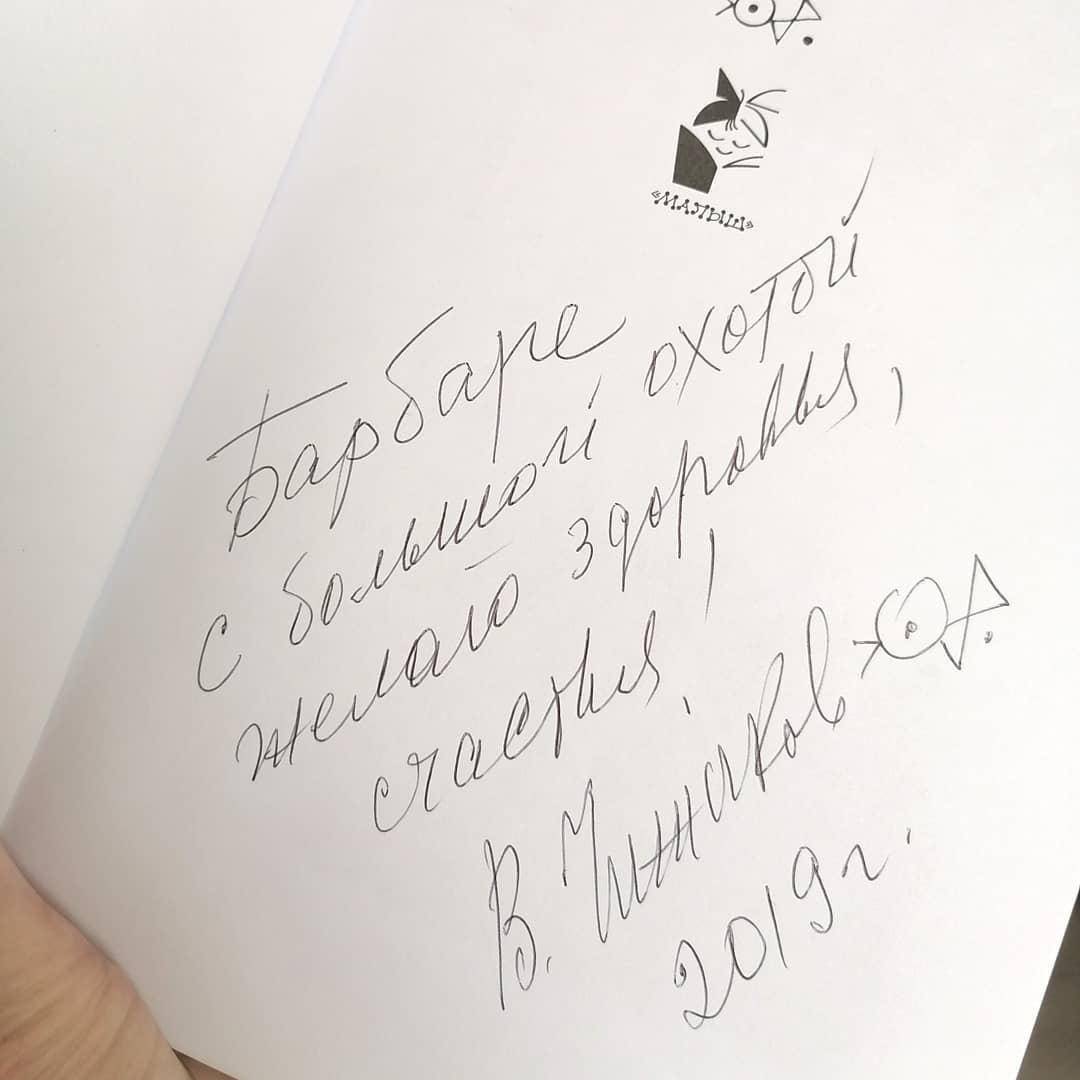 «МАЛЫШ»
Барбаре
с большой охотой
желаю здоровья,
счастья,
В. Чижиков
2019 г.